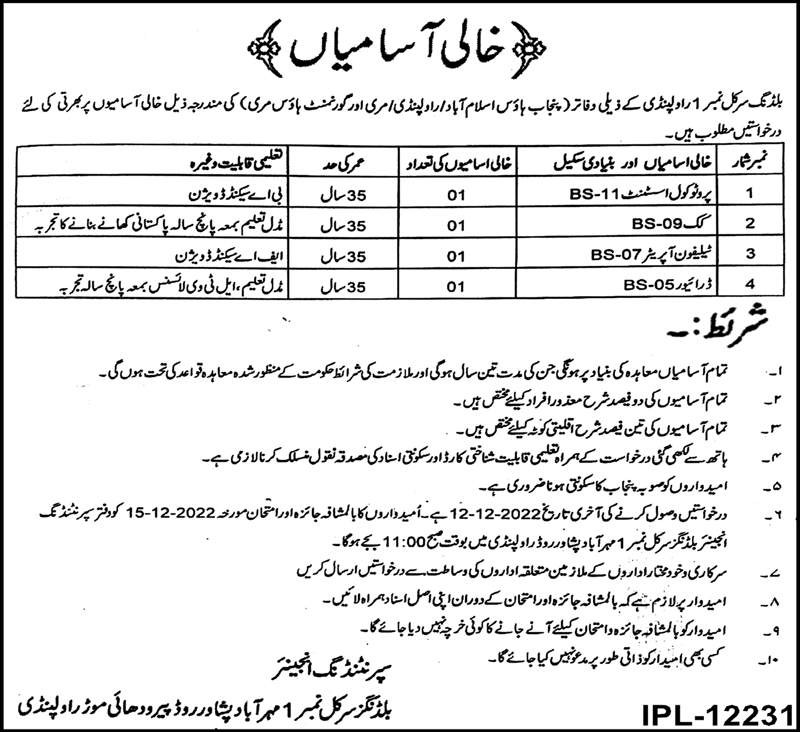 خالی آسامیاں
بلڈنگ سرکل نمبر 1 راولپنڈی کے ذیلی دفاتر (پنجاب ہاؤس اسلام آباد/راولپنڈی/مری اور گورنمنٹ ہاؤس مری) کی مندرجہ ذیل خالی آسامیوں پر بھرتی کی لئے
درخواستیں مطلوب ہیں۔
نمبر شمار خالی اسامیاں اور بنیادی سکیل خالی اسامیوں کی تعداد عمر کی حد تعلیمی قابلیت وغیرہ
1 پروٹوکول اسسٹنٹ BS-11 01 35 سال بی اے سیکنڈ ڈویژن
2 کک BS-09 01 35 سال مڈل تعلیم بمعہ پانچ سالہ پاکستانی کھانے بنانے کا تجربہ
3 ٹیلیفون آپریٹر BS-07 01 35 سال ایف اے سیکنڈ ڈویژن
4 ڈرائیور BS-05 01 35 سال مڈل تعلیم، ایل ٹی وی لائسنس بمعہ پانچ سالہ تجربہ
شرائط:۔
۱۔ تمام آسامیاں معاہدہ کی بنیاد پر ہونگی جن کی مدت تین سال ہوگی اور ملازمت کی شرائط حکومت کے منظور شدہ معاہدہ قواعد کی تحت ہوں گی۔
۲۔ تمام آسامیوں کی دو فیصد شرح معذور افراد کیلئے مختص ہیں۔
۳۔ تمام آسامیوں کی تین فیصد شرح اقلیتی کوٹہ کیلئے مختص ہیں۔
۴۔ ہاتھ سے لکھی گئی درخواست کے ہمراہ تعلیمی قابلیت شناختی کارڈ اور سکونتی اسناد کی مصدقہ نقول منسلک کرنا لازی ہے۔
۵۔ امیدواروں کو صوبہ پنجاب کا سکونتی ہونا ضروری ہے۔
۶۔ درخواستیں وصول کرنے کی آخری تاریخ 12-12-2022 ہے۔ اُمیدواروں کا بالمشافہ جائزہ اور امتحان مورخہ 15-12-2022 کو دفتر سپرنٹنڈنگ
انجینئر بلڈنگز سرکل نمبر 1 مہر آباد پشاور روڈ راولپنڈی میں بوقت صبح 11:00 بجے ہوگا۔
۷۔ سرکاری و خود مختار اداروں کے ملازمین متعلقہ اداروں کی وساطت سے درخواستیں ارسال کریں
۸۔ امیدوار پر لازم ہے کہ بالمشافہ جائزہ اور امتحان کے دوران اپنی اصل اسناد ہمراہ لائیں۔
۹۔ امیدوار کو بالمشافہ جائزہ و امتحان کیلئے آنے جانے کا کوئی خرچہ نہیں دیا جائے گا۔
۱۰۔ کسی بھی امیدار کو ذاتی طور پر مدعو نہیں کیا جائے گا۔
سپرنٹنڈنگ انجینئر
بلڈنگز سرکل نمبر 1 مہر آباد پشاور روڈ پیرودھائی موڑ راولپنڈی
IPL-12231